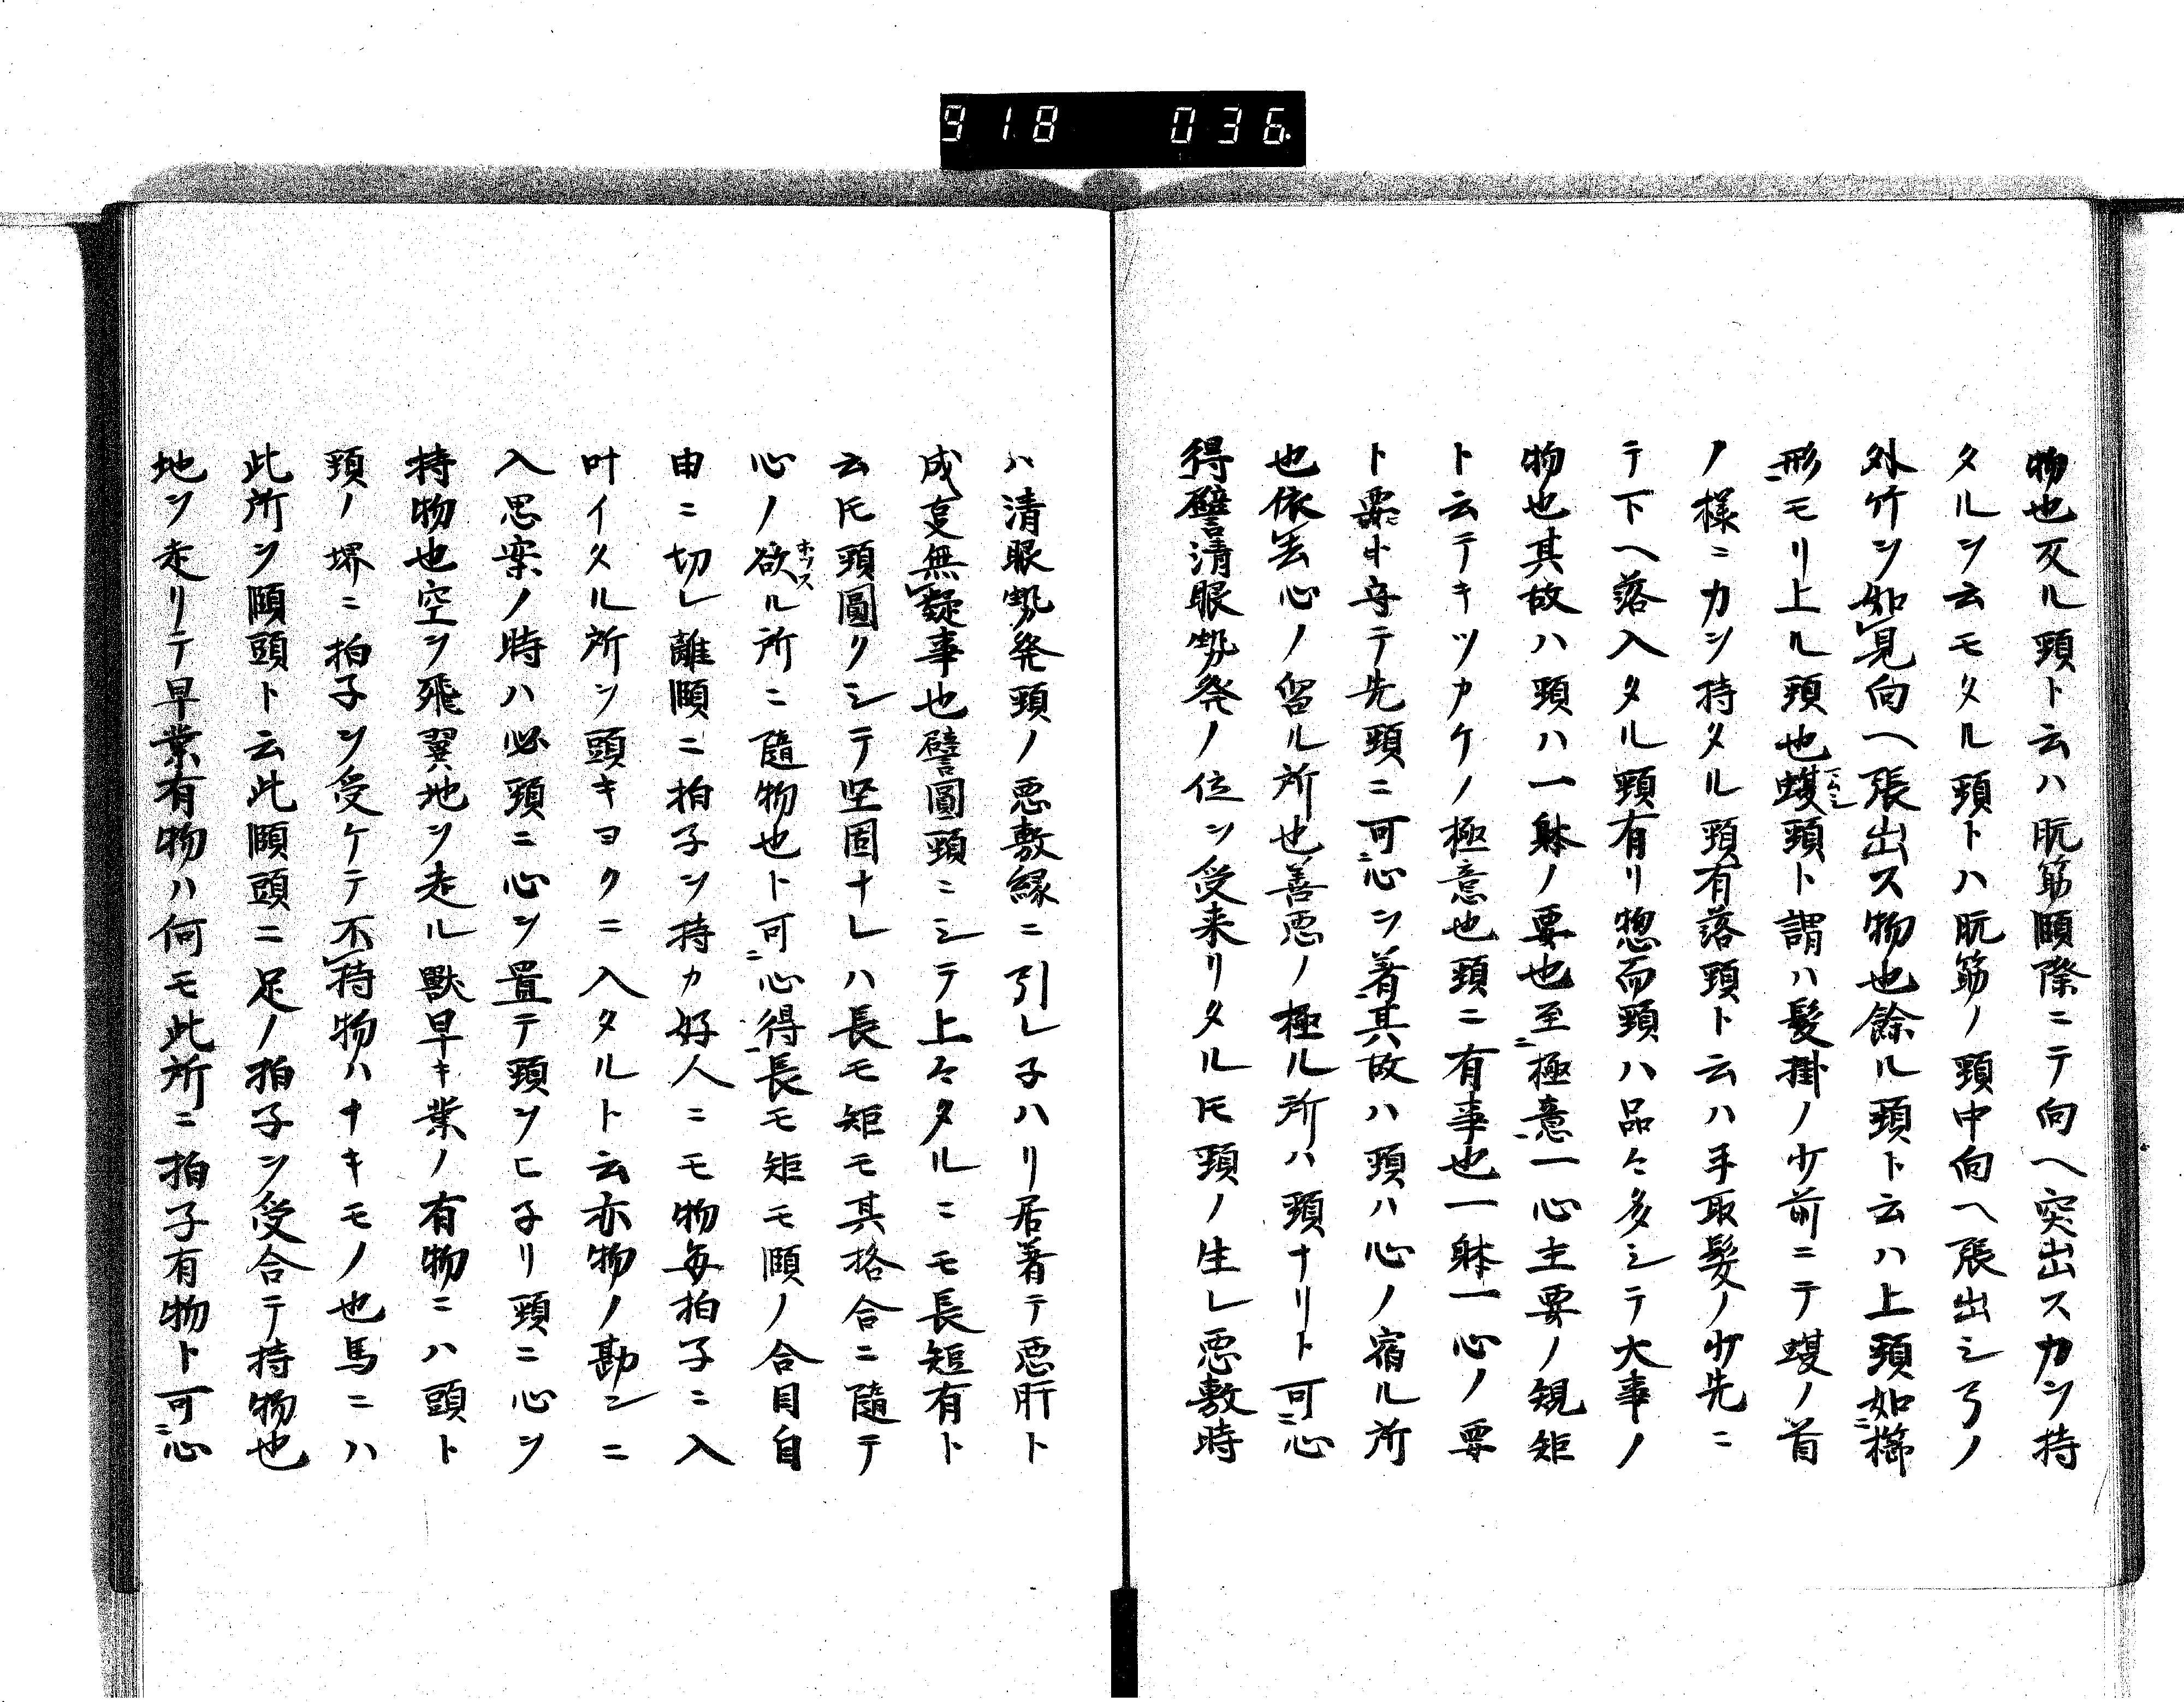 918 036
物也反ル頸ト云ハ肬筋頤際ニテ向ヘ突出スカヲ持
タルヲ云モタル頸トハ肬筋ノ頸中向ヘ張出シ弓ノ
外竹ヲ如見向ヘ張出ス物也餘ル頸ト云ハ上頸如櫛
形モリ上ル頸也蝮頸ト謂ハ髪掛ノ少前ニテ蝮ノ首
ノ様ニカヲ持タル頸有落頸ト云ハ手取髪ノ少先ニ
テ下ヘ落入タル頸有リ惣而頸ハ品々多シテ大事ノ
物也其故ハ頸ハ一躰ノ要也至極意一心主要ノ規矩
ト云テキツカケノ極意也頸ニ有事也一躰一心ノ要
ト要中守テ先頸ニ可心ヲ著其故ハ頸ハ心ノ宿ル所
也依去心ノ留ル所也善悪ノ極ル所ハ頸ナリト可心
得譬清眼勢発ノ位ヲ受来リタル𪜈頸ノ生レ悪敷時
ハ清眼勢発頸ノ悪敷縁ニ引レ子ハリ居著テ悪肝ト
成㕝無疑事也譬圓頸ニシテ上々タルニモ長短有ト
云𪜈頸圓クシテ堅固ナレハ長モ矩モ其格合ニ隨テ
心ノ欲ホツスル所ニ隨物也ト可心得長モ矩モ頤ノ合目自
由ニ切レ離頤ニ拍子ヲ持カ好人ニモ物毎拍子ニ入
叶イタル所ヲ頸キヨクニ入タルト云亦物ノ勘シニ
入思案ノ時ハ必頸ニ心ヲ置テ頸ヲヒ子リ頸ニ心ヲ
持物也空ヲ飛翼地ヲ走ル獣早キ業ノ有物ニハ頸ト
頸ノ堺ニ拍子ヲ受ケテ不持物ハナキモノ也馬ニハ
此所ヲ頤頸ト云此頤頸ニ足ノ拍子ヲ受合テ持物也
地ヲ走リテ早業有物ハ何モ此所ニ拍子有物ト可心